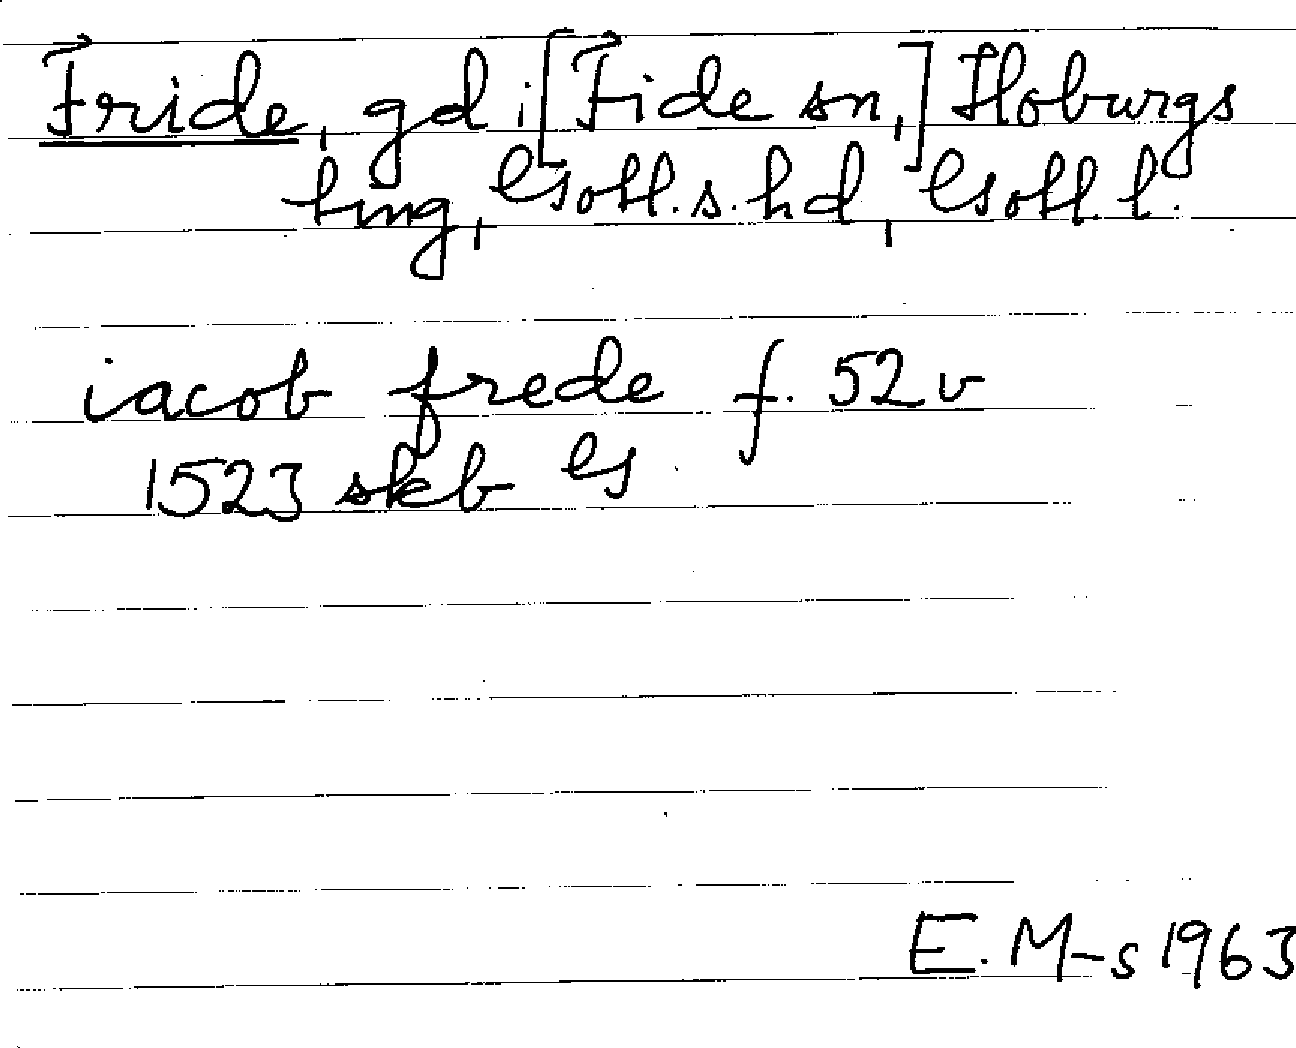 Fride, gd i [Fide sn,] Hoburgs
ting, Gotl. s. hd, Gotl. l.
iacob frede f. 52 v
1523 skb G
E. M-s 1963